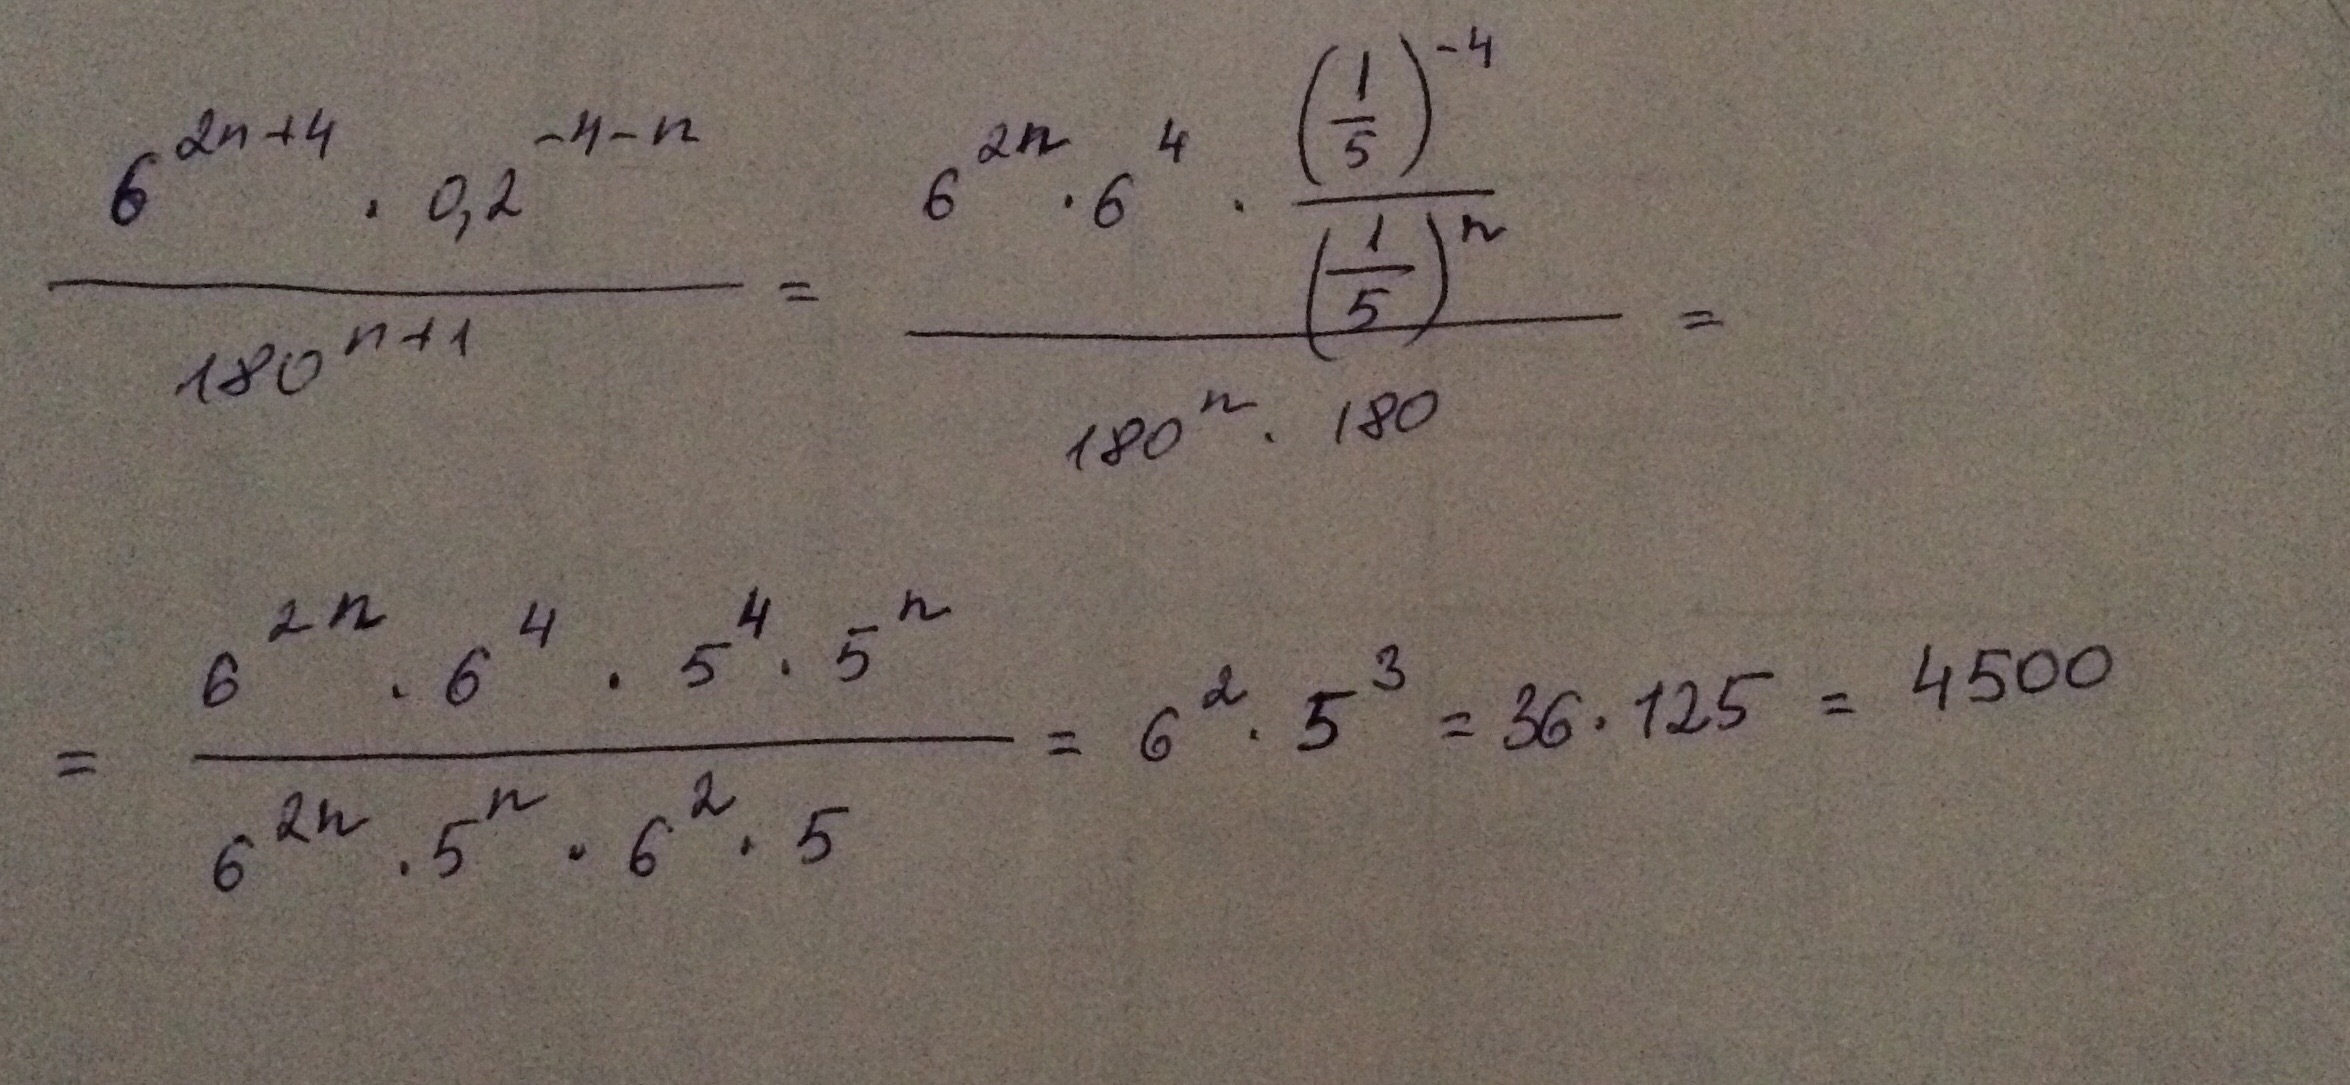 6^{2n+4} · 0,2^{-4-n} / 180^{n+1} = 6^{2n} · 6^4 · (1/5)^{-4} / (1/5)^n / 180^n · 180 =
= 6^{2n} · 6^4 · 5^4 · 5^n / 6^{2n} · 5^n · 6^2 · 5 = 6^2 · 5^3 = 36 · 125 = 4500